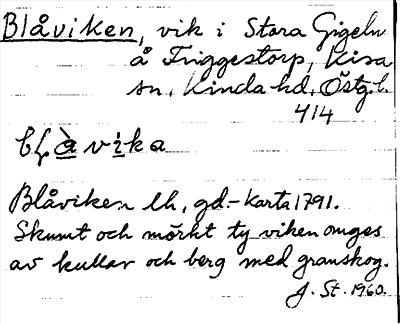 Blåviken, vik i Stora Gigeln
å Triggestorp, Kisa
sn, Kinda hd, Östg.l.
414
Blåviken lh, gd-karta 1791.
Skumt och mörkt ty viken omges
av kullar och berg med granskog.
J. St. 1960.